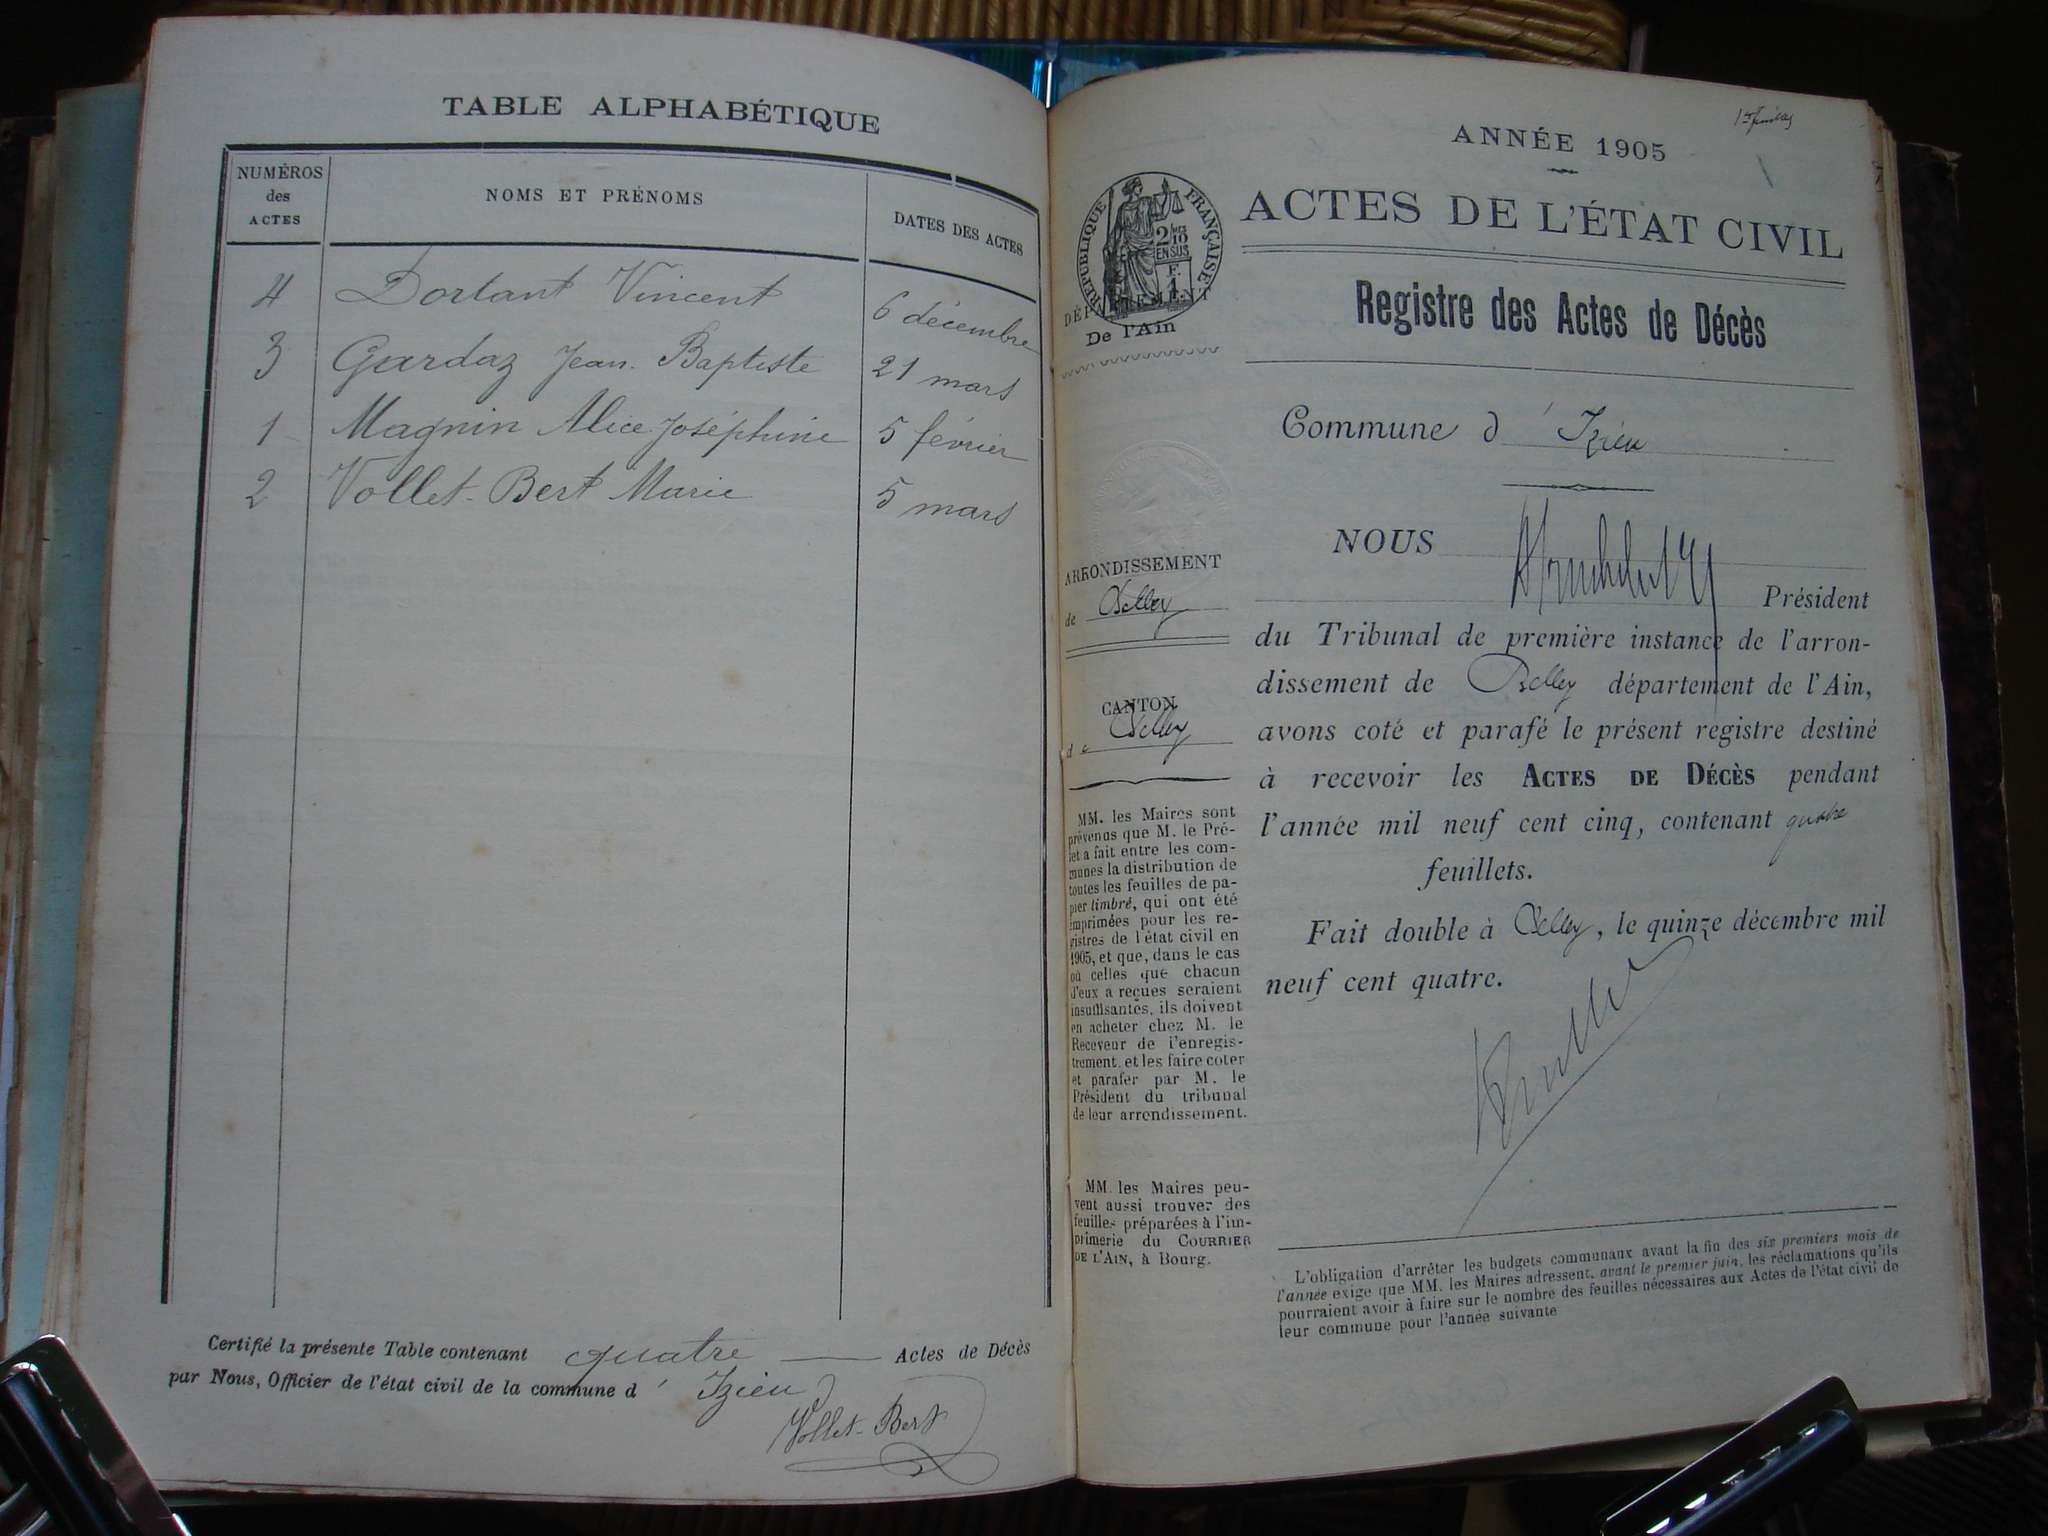 TABLE ALPHABÉTIQUE
NUMÉROS
des
ACTES
NOMS ET PRÉNOMS
DATES DES ACTES
4 Dortant Vincent 6 décembre
3 Gardaz Jean Baptiste 21 mars
1 Magnin Alice Joséphine 5 février
2 Vollet-Bert Marie 5 mars
Certifié la présente Table contenant quatre Actes de Décès
par Nous, Officier de l'état civil de la commune d' Izieu
Vollet-Bert
ANNÉE 1905
ACTES DE L'ÉTAT CIVIL
RÉPUBLIQUE FRANÇAISE
2/10
EN SUS
DÉPARTEMENT
De l'Ain
Registre des Actes de Décès
Commune d' Izieu
ARRONDISSEMENT
de Belley
CANTON
de Belley
MM. les Maires sont
prévenus que M. le Pré-
fet a fait entre les com-
munes la distribution de
toutes les feuilles de pa-
pier timbré, qui ont été
imprimées pour les re-
gistres de l'état civil en
1905, et que, dans le cas
où celles que chacun
d'eux a reçues seraient
insuffisantes, ils doivent
en acheter chez M. le
Receveur de l'enregis-
trement, et les faire coter
et parafer par M. le
Président du tribunal
de leur arrondissement.
MM. les Maires peu-
vent aussi trouver des
feuilles préparées à l'im-
primerie du COURRIER
DE L'AIN, à Bourg.
NOUS
Président
du Tribunal de première instance de l'arron-
dissement de Belley département de l'Ain,
avons coté et parafé le présent registre destiné
à recevoir les ACTES DE DÉCÈS pendant
l'année mil neuf cent cinq, contenant quatre
feuillets.
Fait double à Belley, le quinze décembre mil
neuf cent quatre.
L'obligation d'arrêter les budgets communaux avant la fin des six premiers mois de
l'année exige que MM. les Maires adressent, avant le premier juin, les réclamations qu'ils
pourraient avoir à faire sur le nombre des feuilles nécessaires aux Actes de l'état civil de
leur commune pour l'année suivante